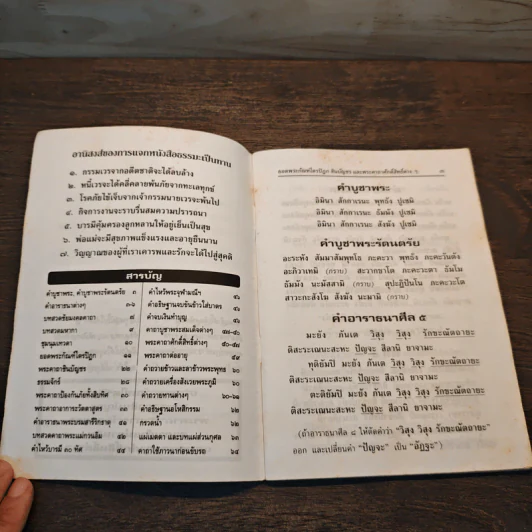 อานิสงส์ของการแจกหนังสือธรรมะเป็นทาน
๑. กรรมเวรจากอดีตชาติจะได้ลบล้าง
๒. หนี้เวรจะได้คลี่คลายพ้นภัยจากทะเลทุกข์
๓. โรคภัยไข้เจ็บจากเจ้ากรรมนายเวรจะพ้นไป
๔. กิจการงานจะราบรื่นสมความปรารถนา
๕. บารมีคุ้มครองลูกหลานให้อยู่เย็นเป็นสุข
๖. พ่อแม่จะมีสุขภาพแข็งแรงและอายุยืนนาน
๗. วิญญาณของผู้ที่เราเคารพและรักจะได้ไปสู่สุคติ
สารบัญ
คำบูชาพระ, คำบูชาพระรัตนตรัย ๓
คำอาราธนาต่างๆ
บทสวดชัยมงคลคาถา ๘
บทสวดมหากา
ชุมนุมเทวดา
ยอดพระกัณฑ์ไตรปิฎก ๑๑
พระคาถาชินบัญชร
ธรรมจักร
พระคาถาป้องกันภัยทั้งสิบทิศ
พระคาถาอาการะวัตตาสูตร
คำอาราธนาพระบรมสารีริกธาตุ
บทสวดคาถาพระแม่กวนอิม
คำไหว้บารมี ๓๐ ทัศ
คำไหว้พระจุฬามณีฯ
คำอธิษฐานจบขันข้าวใส่บาตร
คำจบเงินทำบุญ
คาถาบูชาพระสมเด็จต่างๆ
พระคาถาศักดิ์สิทธิ์ต่างๆ
พระคาถาต่ออายุ ๕๙
คำถวายข้าวและลาข้าวพระพุทธ ๖๐
คำถวายเครื่องสังเวยพระภูมิ ๖๐
คำถวายทานต่างๆ ๖๐-๖๑
คำอธิษฐานอโหสิกรรม
กรวดน้ำ
แผ่เมตตา และบทแผ่ส่วนกุศล
คาถาใช้ภาวนาก่อนขับรถ ๖๔
ยอดพระกัณฑ์ไตรปิฎก ชินบัญชร และพระคาถาศักดิ์สิทธิ์ต่าง ๆ
คำบูชาพระ
อิมินา สักกาเรนะ พุทธัง ปูเชมิ
อิมินา สักกาเรนะ ธัมมัง ปูเชมิ
อิมินา สักกาเรนะ สังฆัง ปูเชมิ
คำบูชาพระรัตนตรัย
อะระหัง สัมมาสัมพุทโธ ภะคะวา พุทธัง ภะคะวันตัง
อะภิวาเทมิ (กราบ) สะวากขาโต ภะคะวะตา ธัมโม
ธัมมัง นะมัสสามิ (กราบ) สุปะฏิปันโน ภะคะวะโต
สาวะกะสังโฆ สังฆัง นะมามิ (กราบ)
คำอาราธนาศีล ๕
มะยัง ภันเต วิสุง วิสุง รักขะณัตถายะ
ติสะระเณนะสะหะ ปัญจะ สีลานิ ยาจามะ
ทุติยัมปิ มะยัง ภันเต วิสุง วิสุง รักขะณัตถายะ
ติสะระเณนะสะหะ ปัญจะ สีลานิ ยาจามะ
ตะติยัมปิ มะยัง ภันเต วิสุง วิสุง รักขะณัตถายะ
ติสะระเณนะสะหะ ปัญจะ สีลานิ ยาจามะ
(ถ้าอาราธนาศีล ๘ ให้ตัดคำว่า "วิสุง วิสุง รักขะณัตถายะ"
ออก และเปลี่ยนคำว่า "ปัญจะ" เป็น "อัฏฐะ")